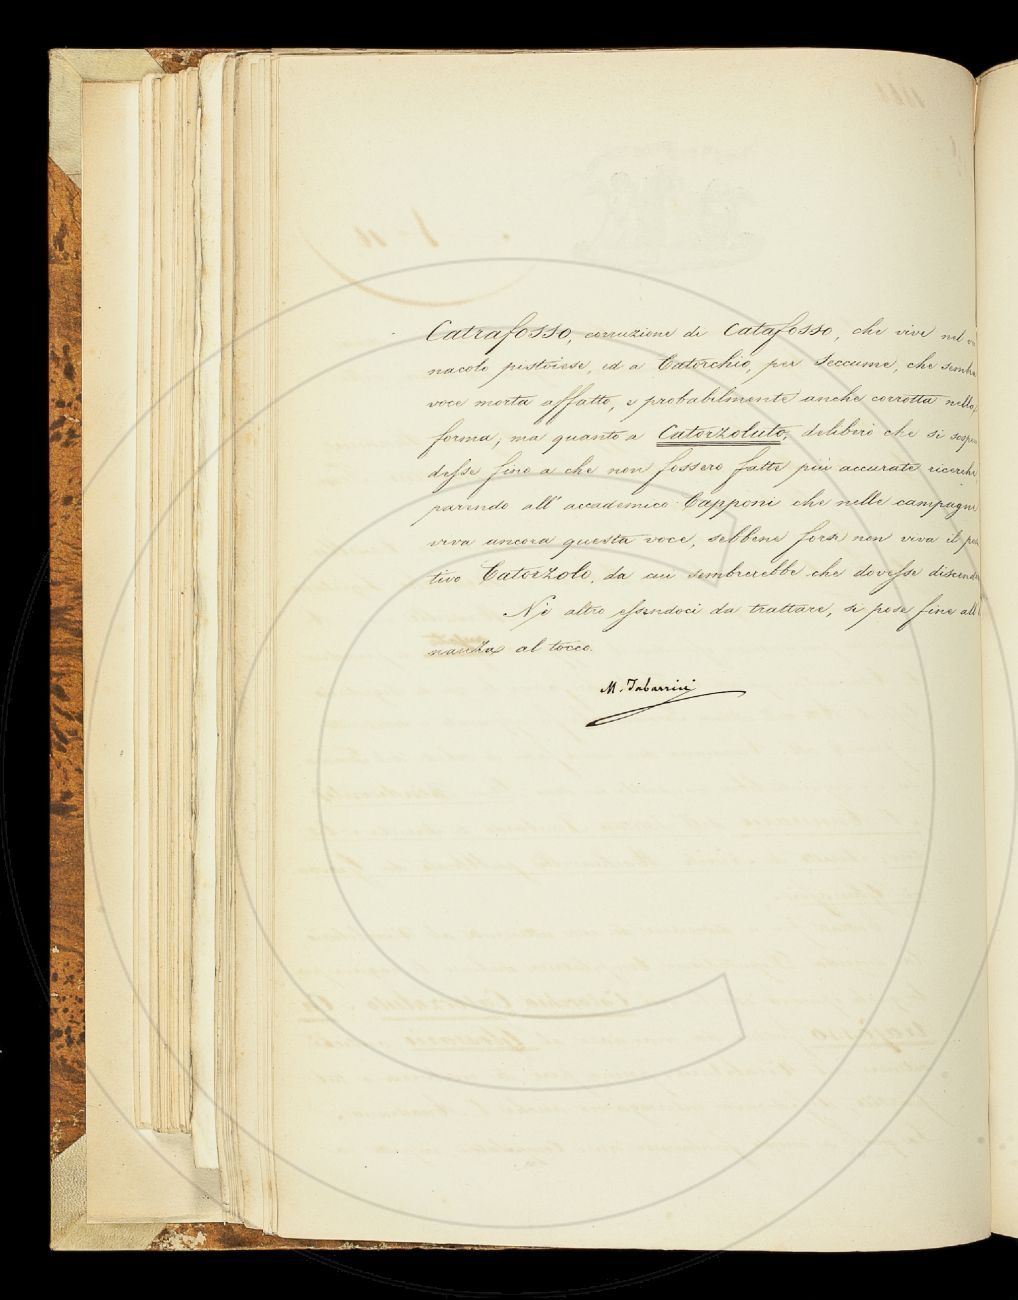 Catrafosso, corruzione di Catafosso, che vive nel ver
nacolo pistoiese, ed a Catorchio, per Seccume, che sembra
voce morta affatto, e probabilmente anche corrotta nella
forma; ma quanto a Catorzoluto, deliberò che si sospen
desse fino a che non fossero fatte più accurate ricerche,
parendo all' accademico Capponi che nelle campagne
viva ancora questa voce, sebbene forse non viva il posi
tivo Catorzolo, da cui sembrerebbe che dovesse discende
Nè altro essendoci da trattare, si pose fine all'
nanza al tocco.
M. Tabarrini